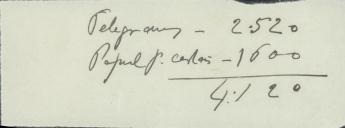 Telegramas - 2.520
Papel p. cartas - 1600
4.120